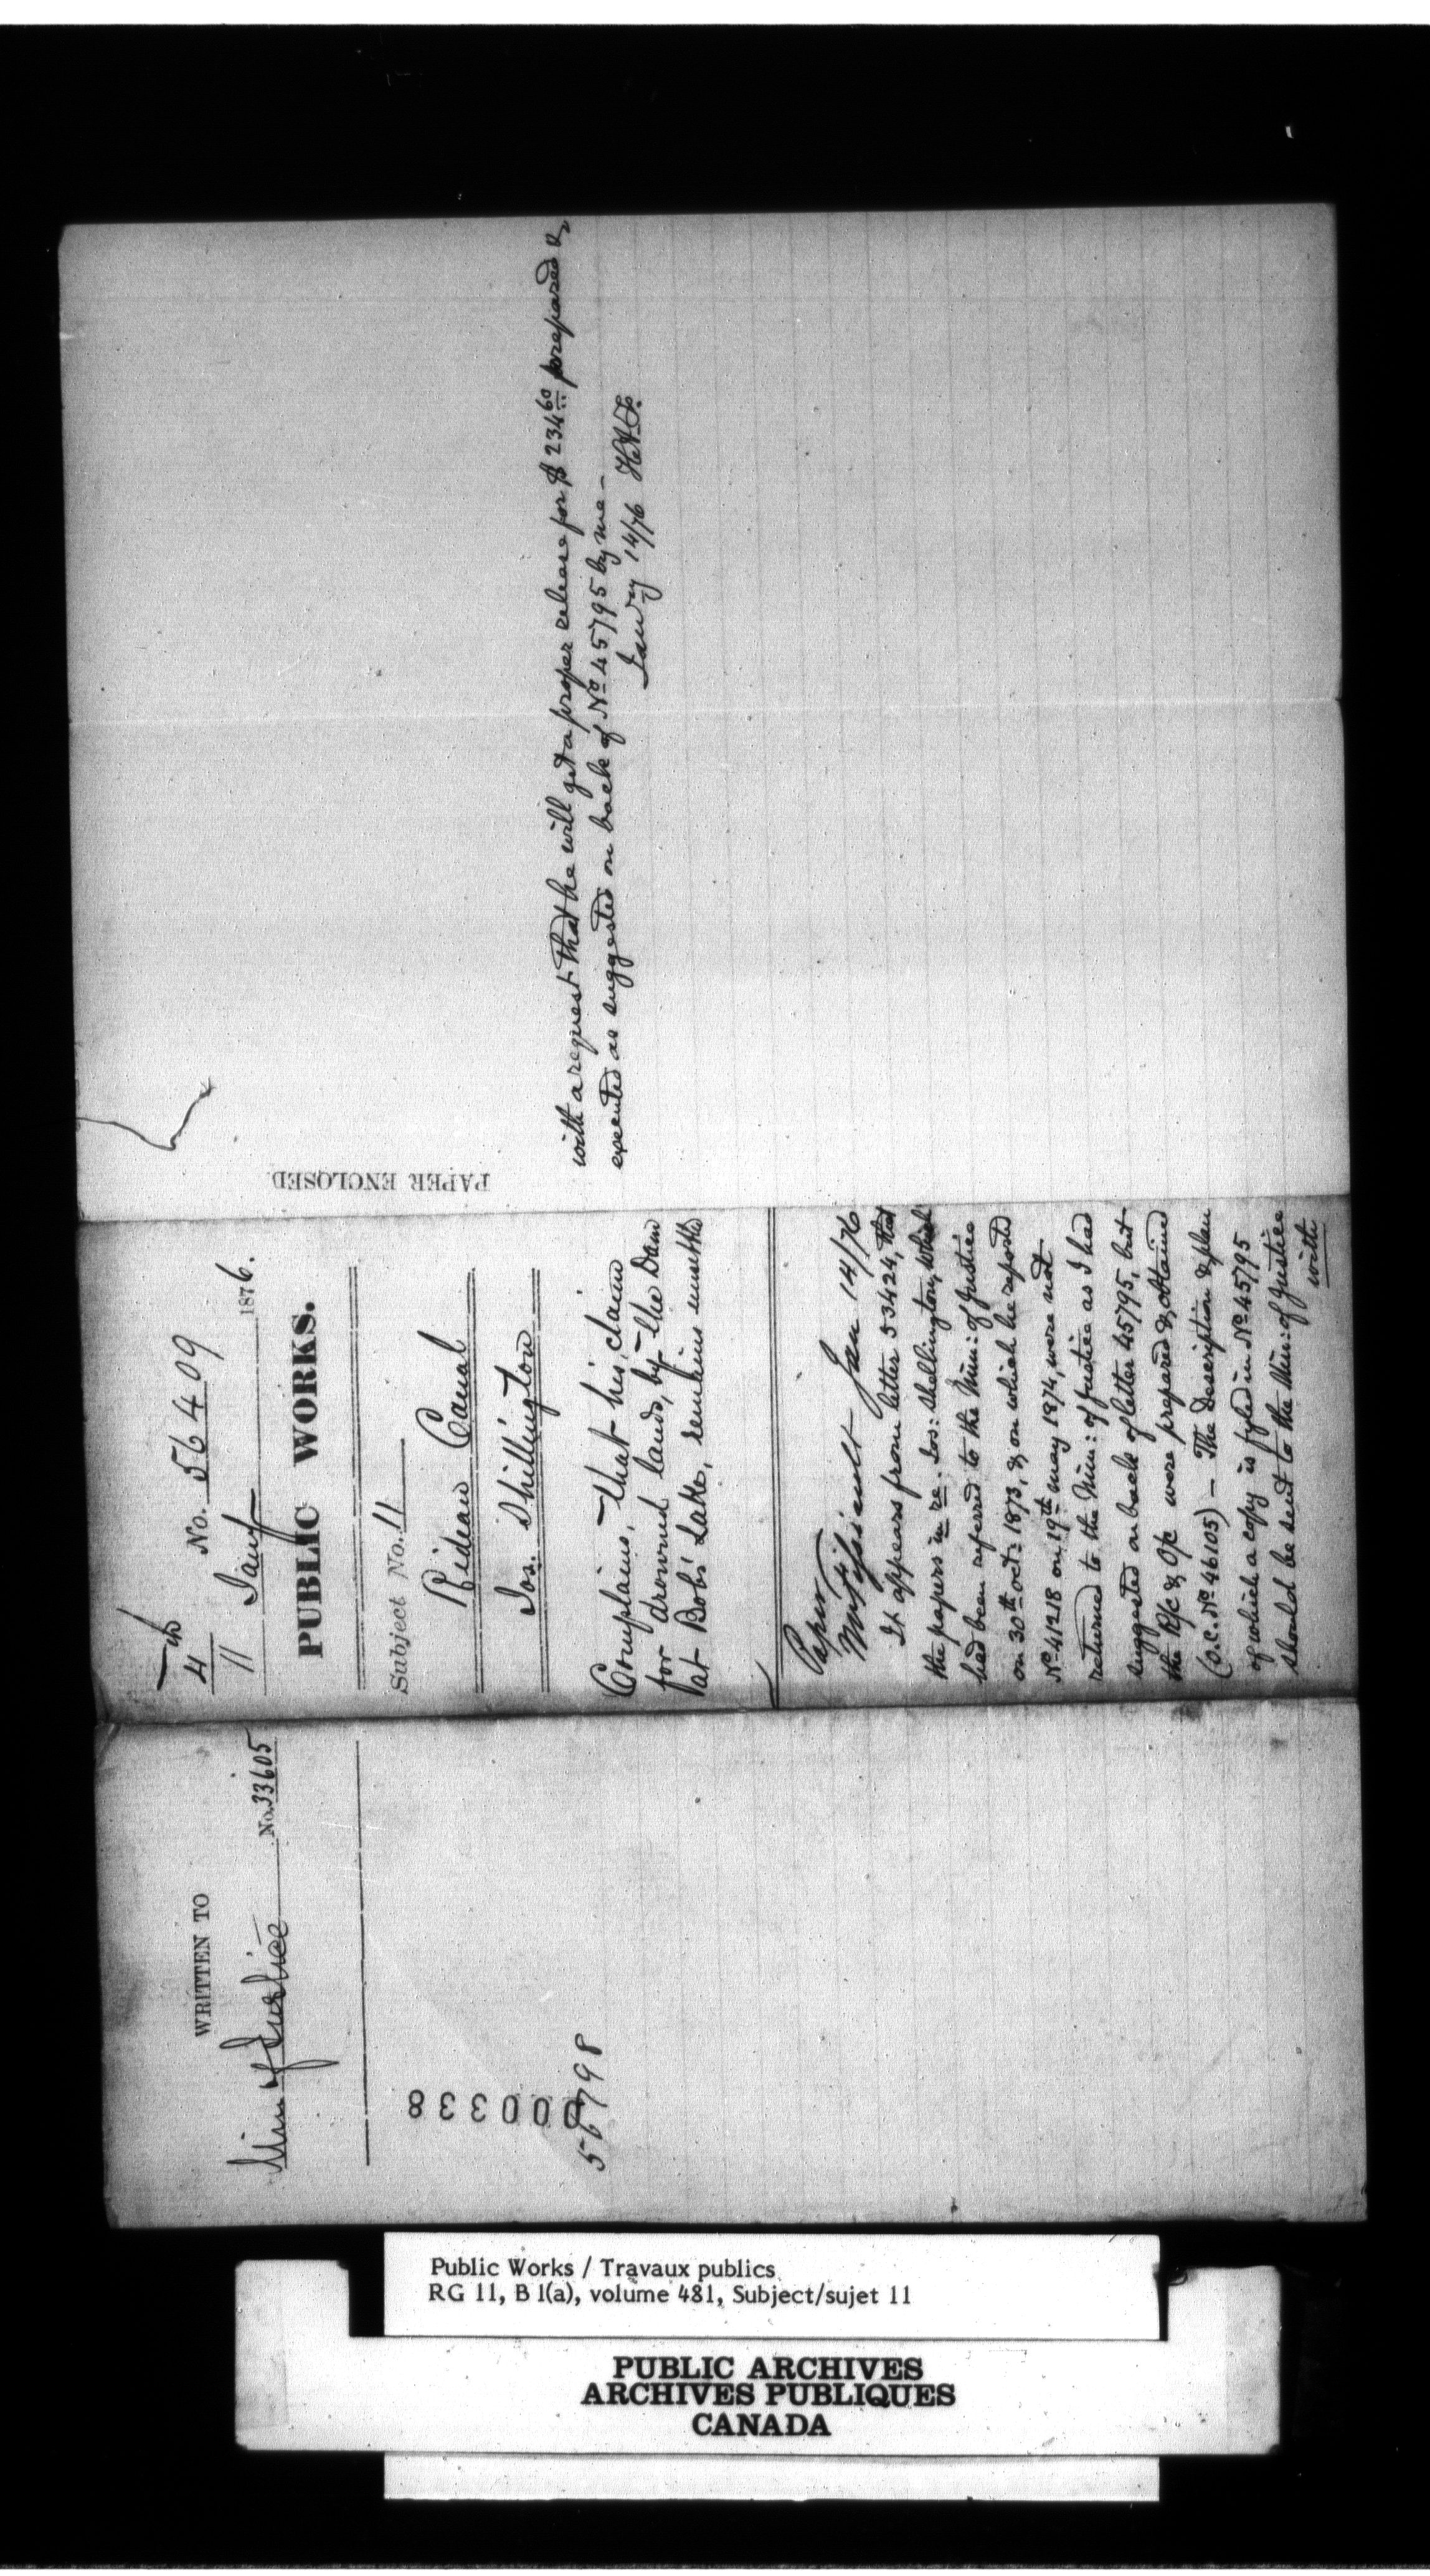 WRITTEN TO
Min of Justice No. 33605
000338
56798
4th
4 No. 56409
11 Jany 1876.
PUBLIC WORKS.
Subject No. 11
Rideau Canal
Jos. Shillington
Complains, that his claim
for drowned lands, by the Dam
at Bobs' Lake, remains unsettled
Paper
Jan 14/76
It appears from letter 53424, that
the papers in re. Jos: Shellington, which
had been referred to the Min: of Justice
on 30th oct: 1873, & on which he reported
No 41218 on 19th may 1874, were not
returned to the Min: of Justice as I had
suggested on back of letter 45795, but
the R/c & O/c were prepared & obtained
(O.C. No 46105) – The Description & plan
of which a copy is fyled in No 45795
should be sent to the Min: of Justice
with
PAPER ENCLOSED
with a request that he will get a proper release for $234.60 prepared &
executed as suggested on back of No 45795 by me –
Jan'ry 14/76
Public Works / Travaux publics
RG 11, B 1(a), volume 481, Subject/sujet 11
PUBLIC ARCHIVES
ARCHIVES PUBLIQUES
CANADA